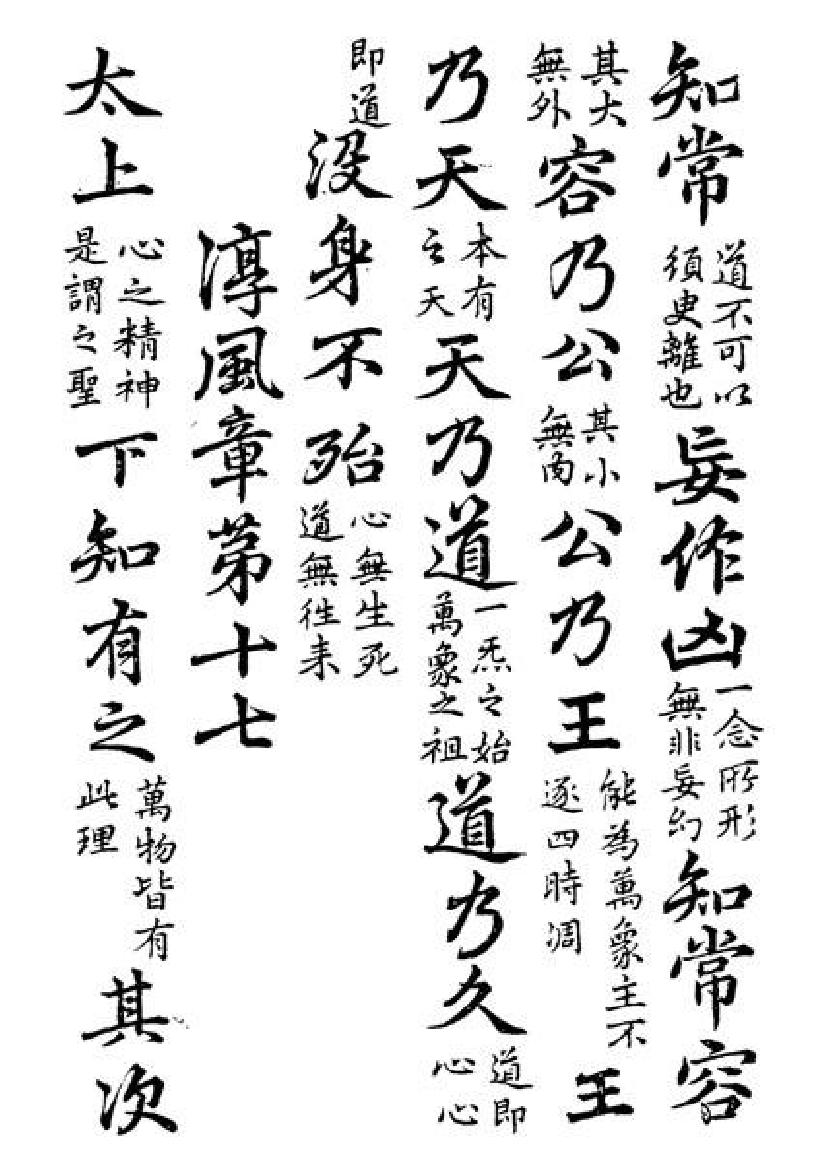 知常道不可以須臾離也妄作凶一念所形無非妄幻知常容
其大無外容乃公其小無內公乃王能為萬象主不逐四時凋王
乃天本有之天天乃道一炁之始萬象之祖道乃久道即心心
即道沒身不殆心無生死道無往来
淳風章第十七
太上心之精神是謂之聖下知有之萬物皆有此理其次